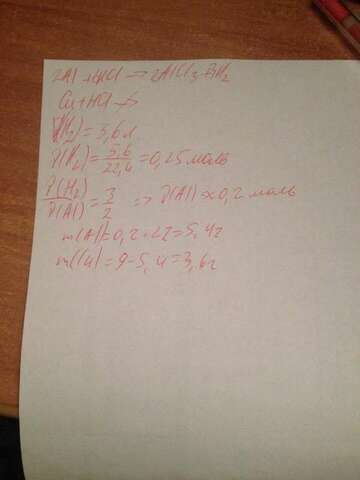 2Al + 6HCl → 2AlCl3 + 3H2
Cu + HCl ↛
V(H2) = 5,6 л.
ν(H2) = 5,6/22,4 = 0,25 моль
ν(H2)/ν(Al) = 3/2 => ν(Al) ≈ 0,2 моль
m(Al) = 0,2 · 27 = 5,4 г
m(Cu) = 9 - 5,4 = 3,6 г